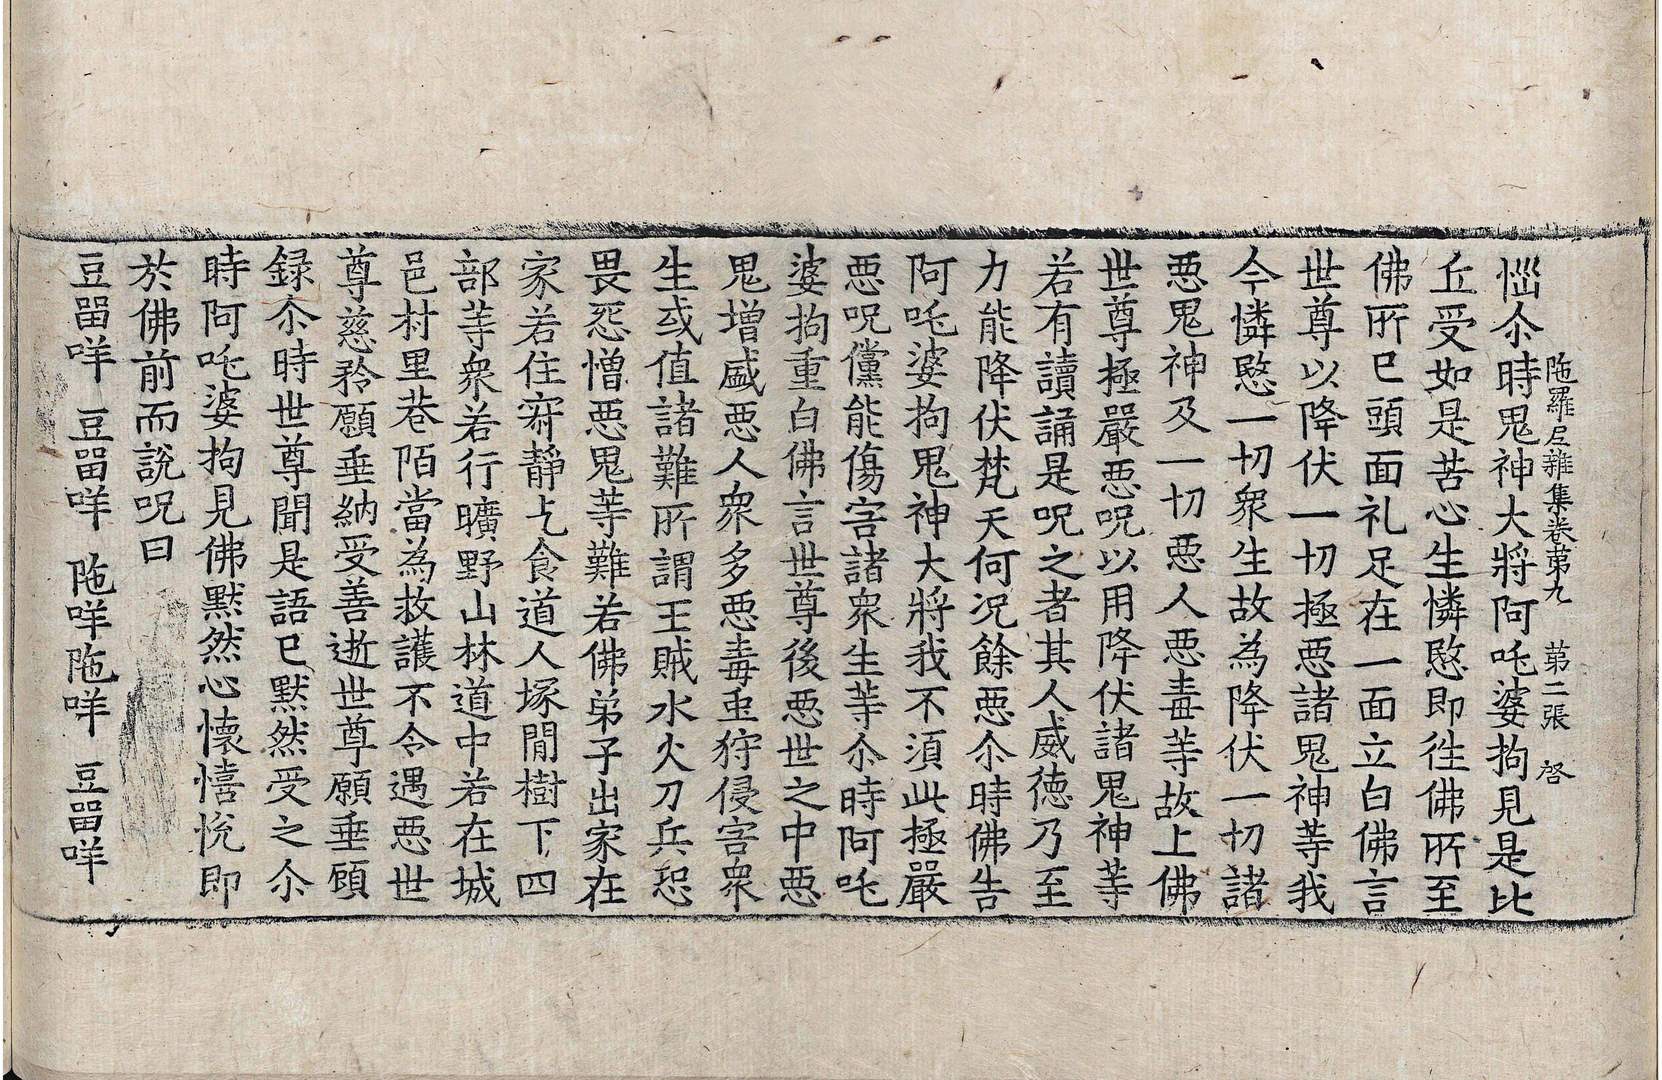 陁羅尼雜集卷第九 第二張 啓
惱尒時鬼神大將阿吒婆拘見是比
丘受如是苦心生憐愍即徃佛所至
佛所已頭面礼足在一面立白佛言
世尊以降伏一切極惡諸鬼神等我
今憐愍一切衆生故為降伏一切諸
惡鬼神及一切惡人惡毒等故上佛
世尊極嚴惡呪以用降伏諸鬼神等
若有讀誦是呪之者其人威德乃至
力能降伏梵天何况餘惡尒時佛告
阿吒婆拘鬼神大將我不須此極嚴
惡呪儻能傷害諸衆生等尒時阿吒
婆拘重白佛言世尊後惡世之中惡
鬼增盛惡人衆多惡毒䖝狩侵害衆
生或值諸難所謂王賊水火刀兵恐
畏怨憎惡鬼等難若佛弟子出家在
家若住𡧯静乞食道人塚閒樹下四
部等衆若行曠野山林道中若在城
邑村里巷陌當為救護不令遇惡世
尊慈矜願垂納受善逝世尊願垂顧
録尒時世尊聞是語已默然受之尒
時阿吒婆拘見佛默然心懷憘悅即
於佛前而說呪曰
豆留咩 豆留咩 陁咩陁咩 豆留咩